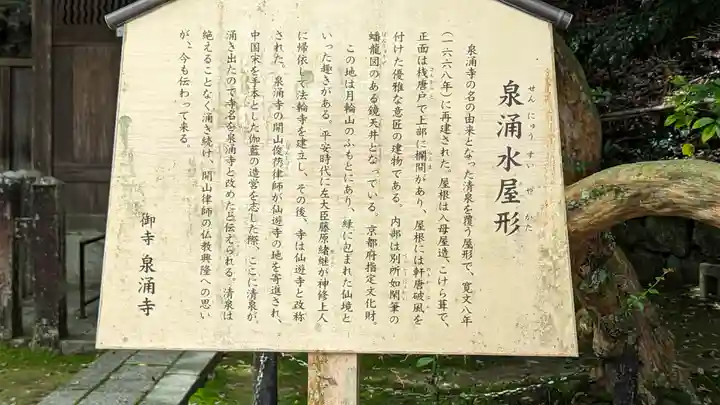 泉涌水屋形
せんにゅうすいやかた
泉涌寺の名の由来となった清泉を覆う屋形で、寛文八年
(一六六八年)に再建された。屋根は入母屋造、こけら葺で、
正面は桟唐戸で上部に欄間があり、屋根には軒唐破風を
付けた優雅な意匠の建物である。内部は別所如閑筆の
蟠龍図のある鏡天井となっている。京都府指定文化財。
この地は月輪山のふもとにあり、緑に包まれた仙境と
いった趣きがある。平安時代に左大臣藤原緒継が神修上人
に帰依して法輪寺を建立し、その後、寺は仙遊寺と改称
された。泉涌寺の開山俊芿律師が仙遊寺の地を寄進され、
中国宋を手本とした伽藍の造営を志した際、ここに清泉が、
涌き出たので寺名を泉涌寺と改めたと伝えられる。清泉は
絶えることなく涌き続け、開山律師の仏教興隆への思い
が、今も伝わって来る。
御寺 泉涌寺